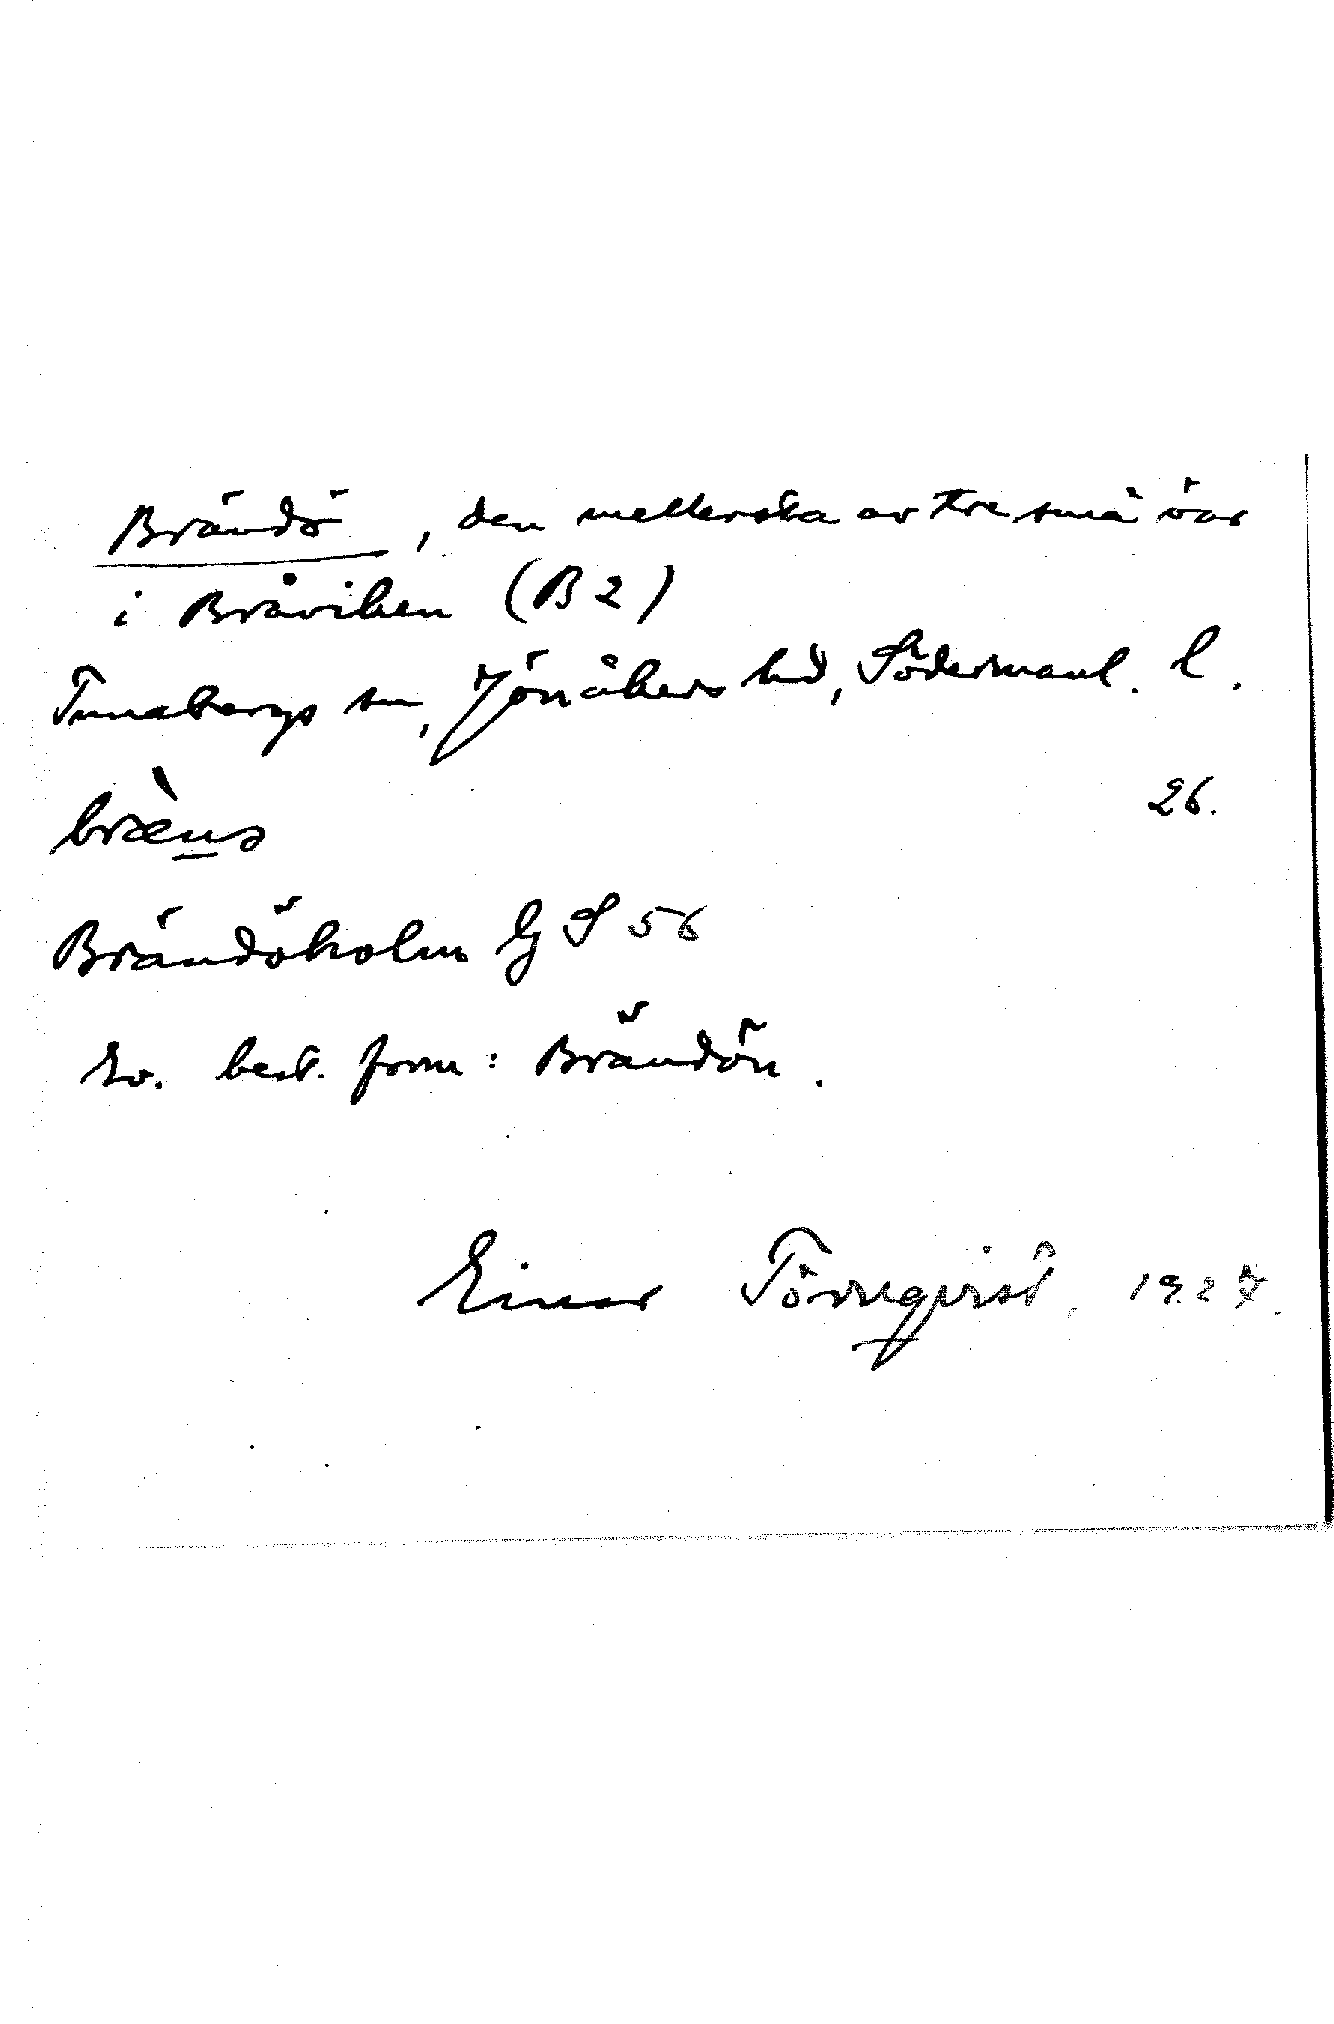 Brändö, den mellersta av tre små öar
i Bråviken (B 2)
Tunabergs sn, Jönåkers hd, Södermanl. l.
26.
bræ̀nə
Brändöholm Gg S 56
Ev. best. form: Brändön.
Einar Törnqvist. 1927.